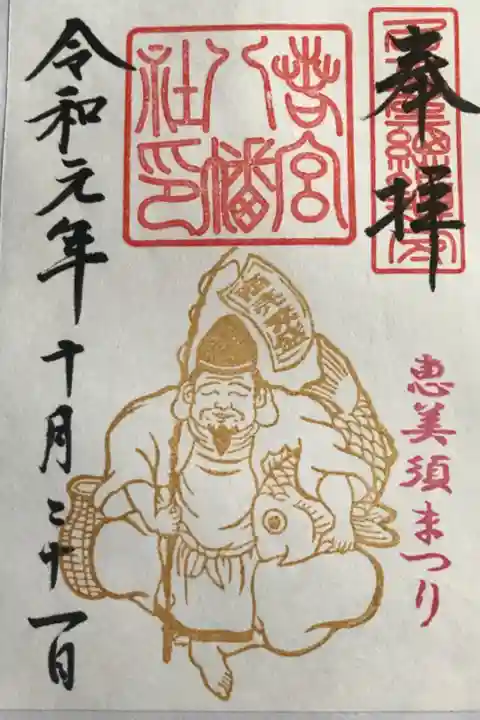 奉拝
恵美須まつり
若宮
八幡
社印
令和元年十月二十一日